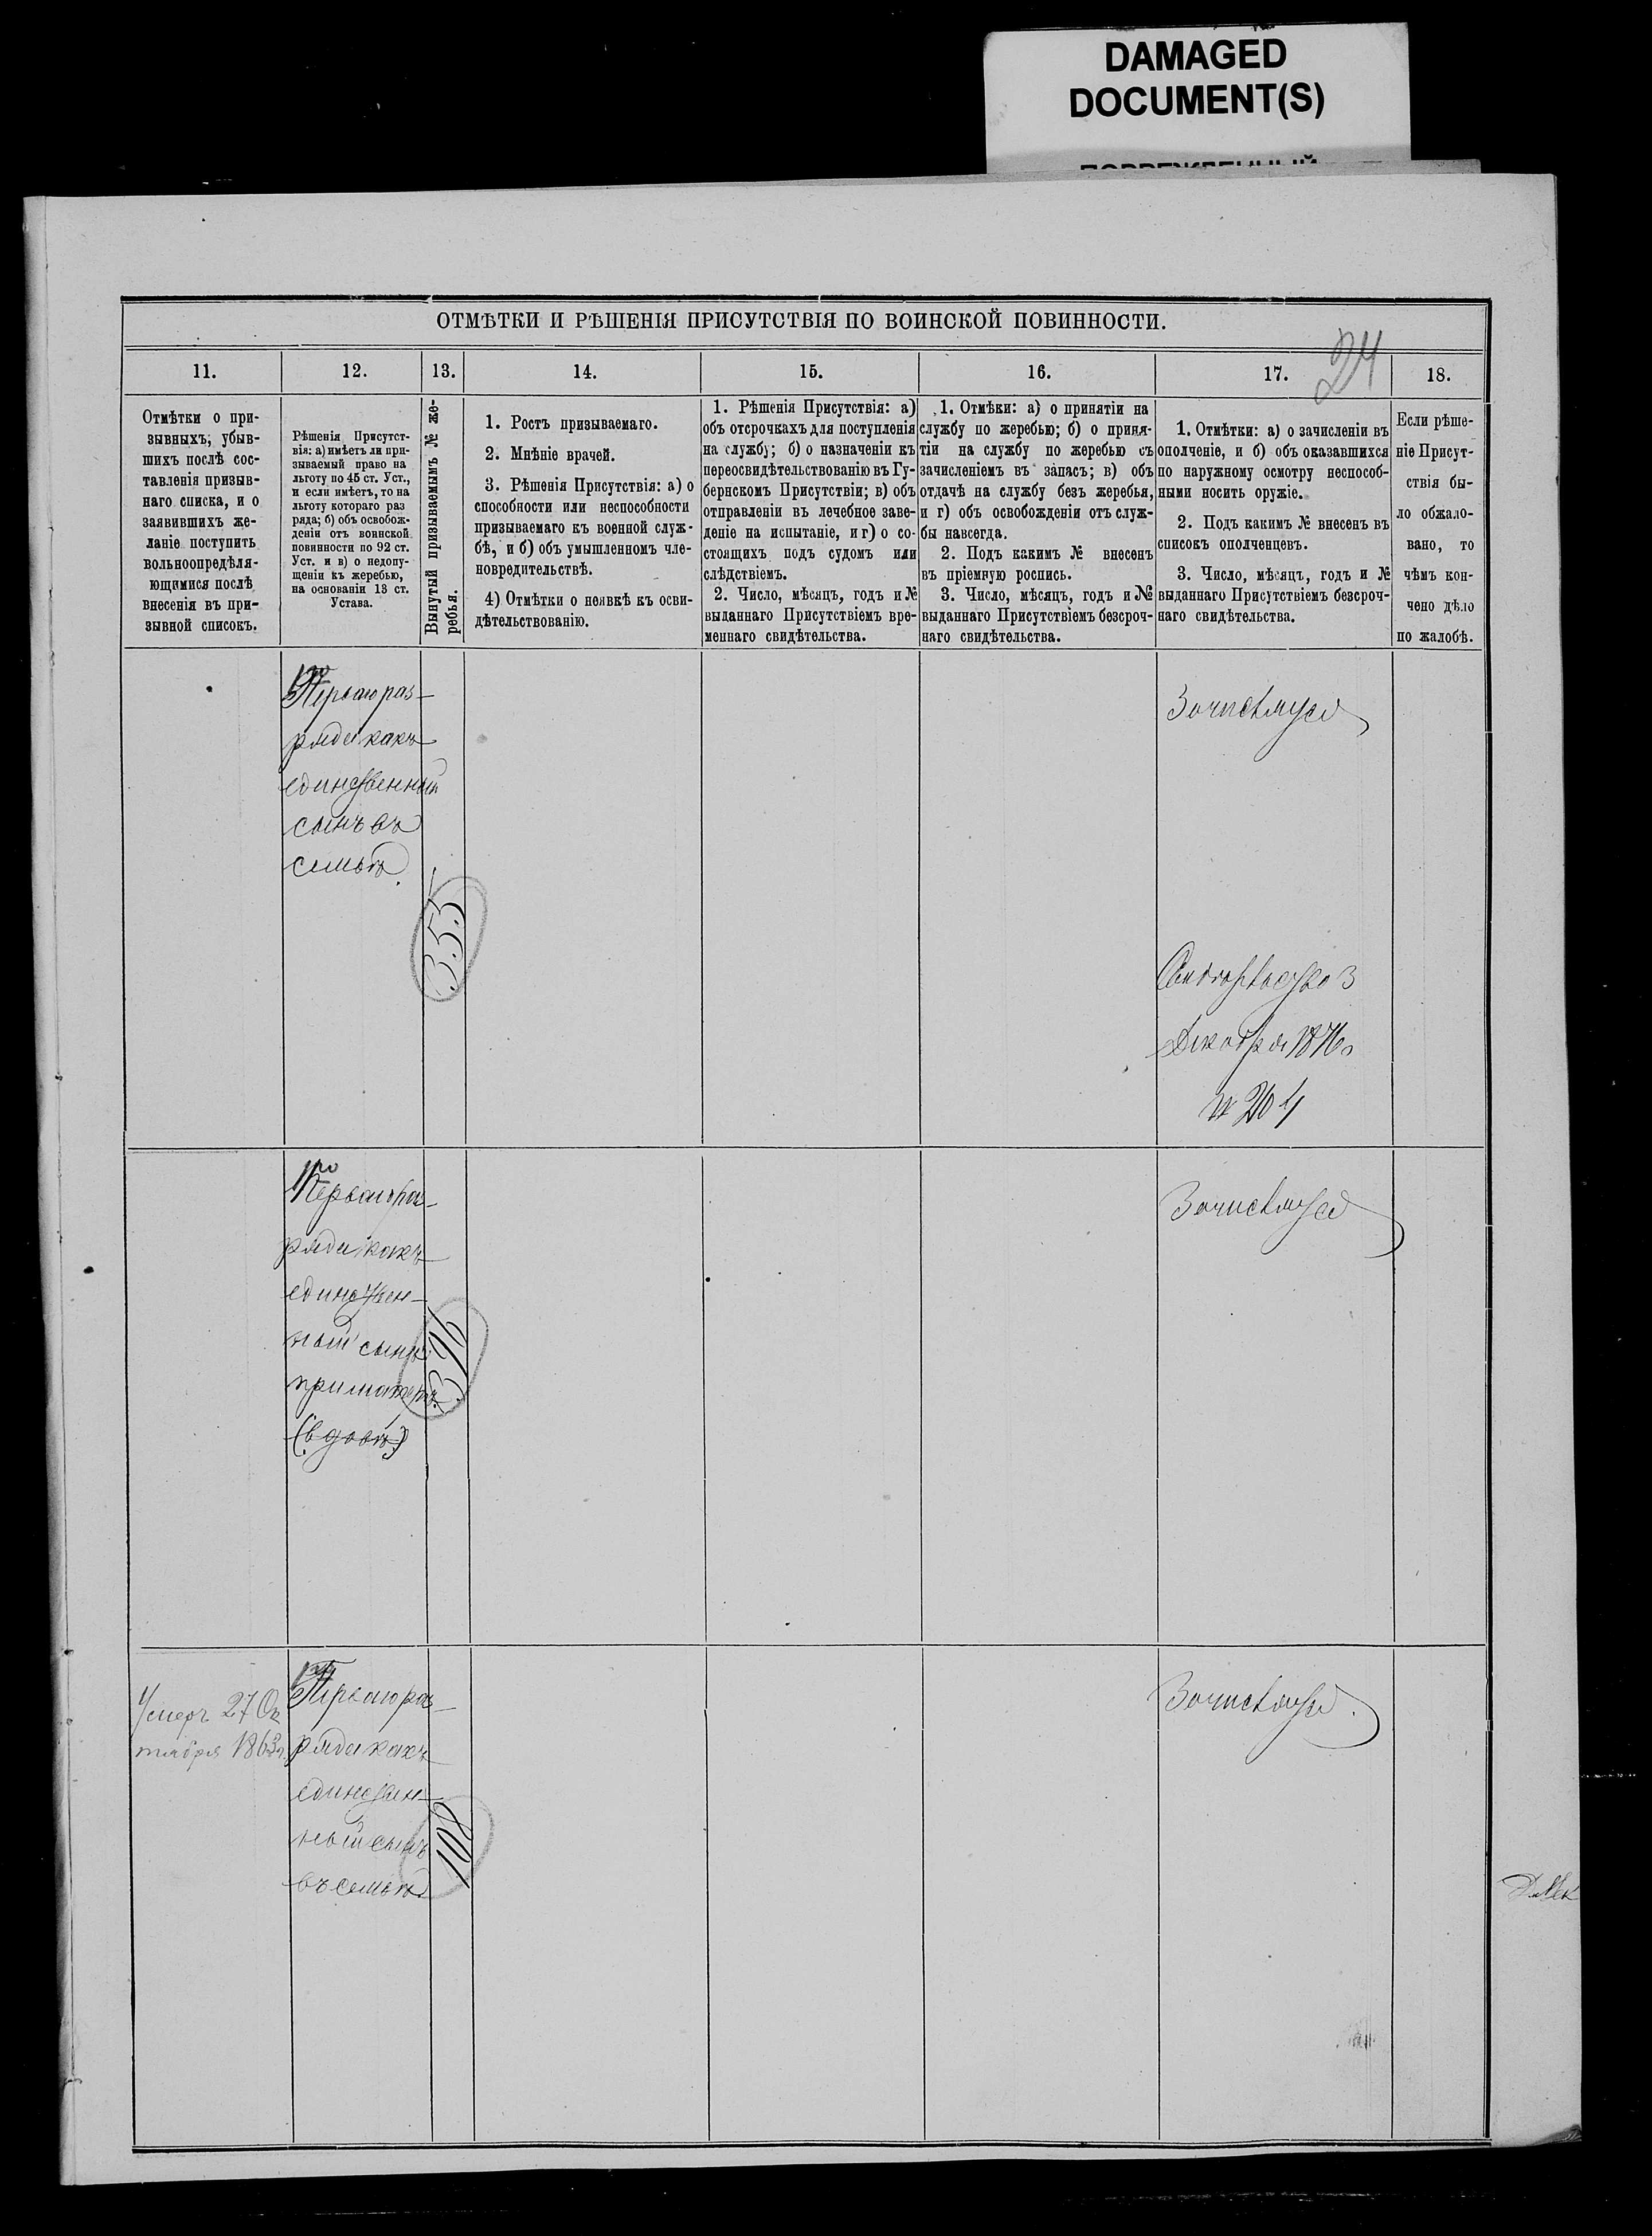 DAMAGED
DOCUMENT(S)
ПОВРЕЖДЕННЫЙ
ОТМѢТКИ И РѢШЕНІЯ ПРИСУТСТВІЯ ПО ВОИНСКОЙ ПОВИННОСТИ.
24
11.
12.
13.
14.
15.
16.
17.
18.
Отмѣтки о при-
зывныхъ, убыв-
шихъ послѣ сос-
тавленія призыв-
наго списка, и о
заявившихъ же-
ланіе поступить
вольноопредѣля-
ющимися послѣ
внесенія въ при-
зывной списокъ.
Рѣшенія Присутст-
вія: а) имѣетъ ли при-
зываемый право на
льготу по 45 ст. Уст.,
и если имѣетъ, то на
льготу котораго раз
ряда; б) объ освобож-
деніи отъ воинской
повинности по 92 ст.
Уст. и в) о недопу-
щеніи къ жеребью,
на основаніи 13 ст.
Устава.
Вынутый призываемымъ № же-
ребья.
1. Ростъ призываемаго.
2. Мнѣніе врачей.
3. Рѣшенія Присутствія: а) о
способности или неспособности
призываемаго къ военной служ-
бѣ, и б) объ умышленномъ чле-
новредительствѣ.
4) Отмѣтки о неявкѣ къ осви-
дѣтельствованію.
1. Рѣшенія Присутствія: а)
объ отсрочкахъ для поступленія
на службу; б) о назначеніи къ
переосвидѣтельствованію въ Гу-
бернскомъ Присутствіи; в) объ
отправленіи въ лечебное заве-
деніе на испытаніе, и г) о со-
стоящихъ подъ судомъ или
слѣдствіемъ.
2. Число, мѣсяцъ, годъ и №
выданнаго Присутствіемъ вре-
меннаго свидѣтельства.
1. Отмѣки: а) о принятіи на
службу по жеребью; б) о приня-
тіи на службу по жеребью съ
зачисленіемъ въ запасъ; в) объ
отдачѣ на службу безъ жеребья,
и г) объ освобожденіи отъ служ-
бы навсегда.
2. Подъ какимъ № внесенъ
въ пріемную роспись.
3. Число, мѣсяцъ, годъ и №
выданнаго Присутствіемъ безсроч-
наго свидѣтельства.
1. Отмѣтки: а) о зачисленіи въ
ополченіе, и б) объ оказавшихся
по наружному осмотру неспособ-
ными носить оружіе.
2. Подъ какимъ № внесенъ въ
списокъ ополченцевъ.
3. Число, мѣсяцъ, годъ и №
выданнаго Присутствіемъ безсроч-
наго свидѣтельства.
Если рѣше-
ніе Присут-
ствія бы-
ло обжало-
вано, то
чѣмъ кон-
чено дѣло
по жалобѣ.
Перваго раз-
ряда какъ
единственный
сынъ въ
семьѣ.
355
Зачисляется
3
Декабря 1876
№ 264
Перваго раз-
ряда какъ
единствен-
ный сынъ
при матери
(вдовѣ)
396
Зачисляется
Умеръ 27 Ок
тября 1863г.
Перваго раз
ряда какъ
единствен-
ный сынъ
въ семьѣ
108
Зачисляется.